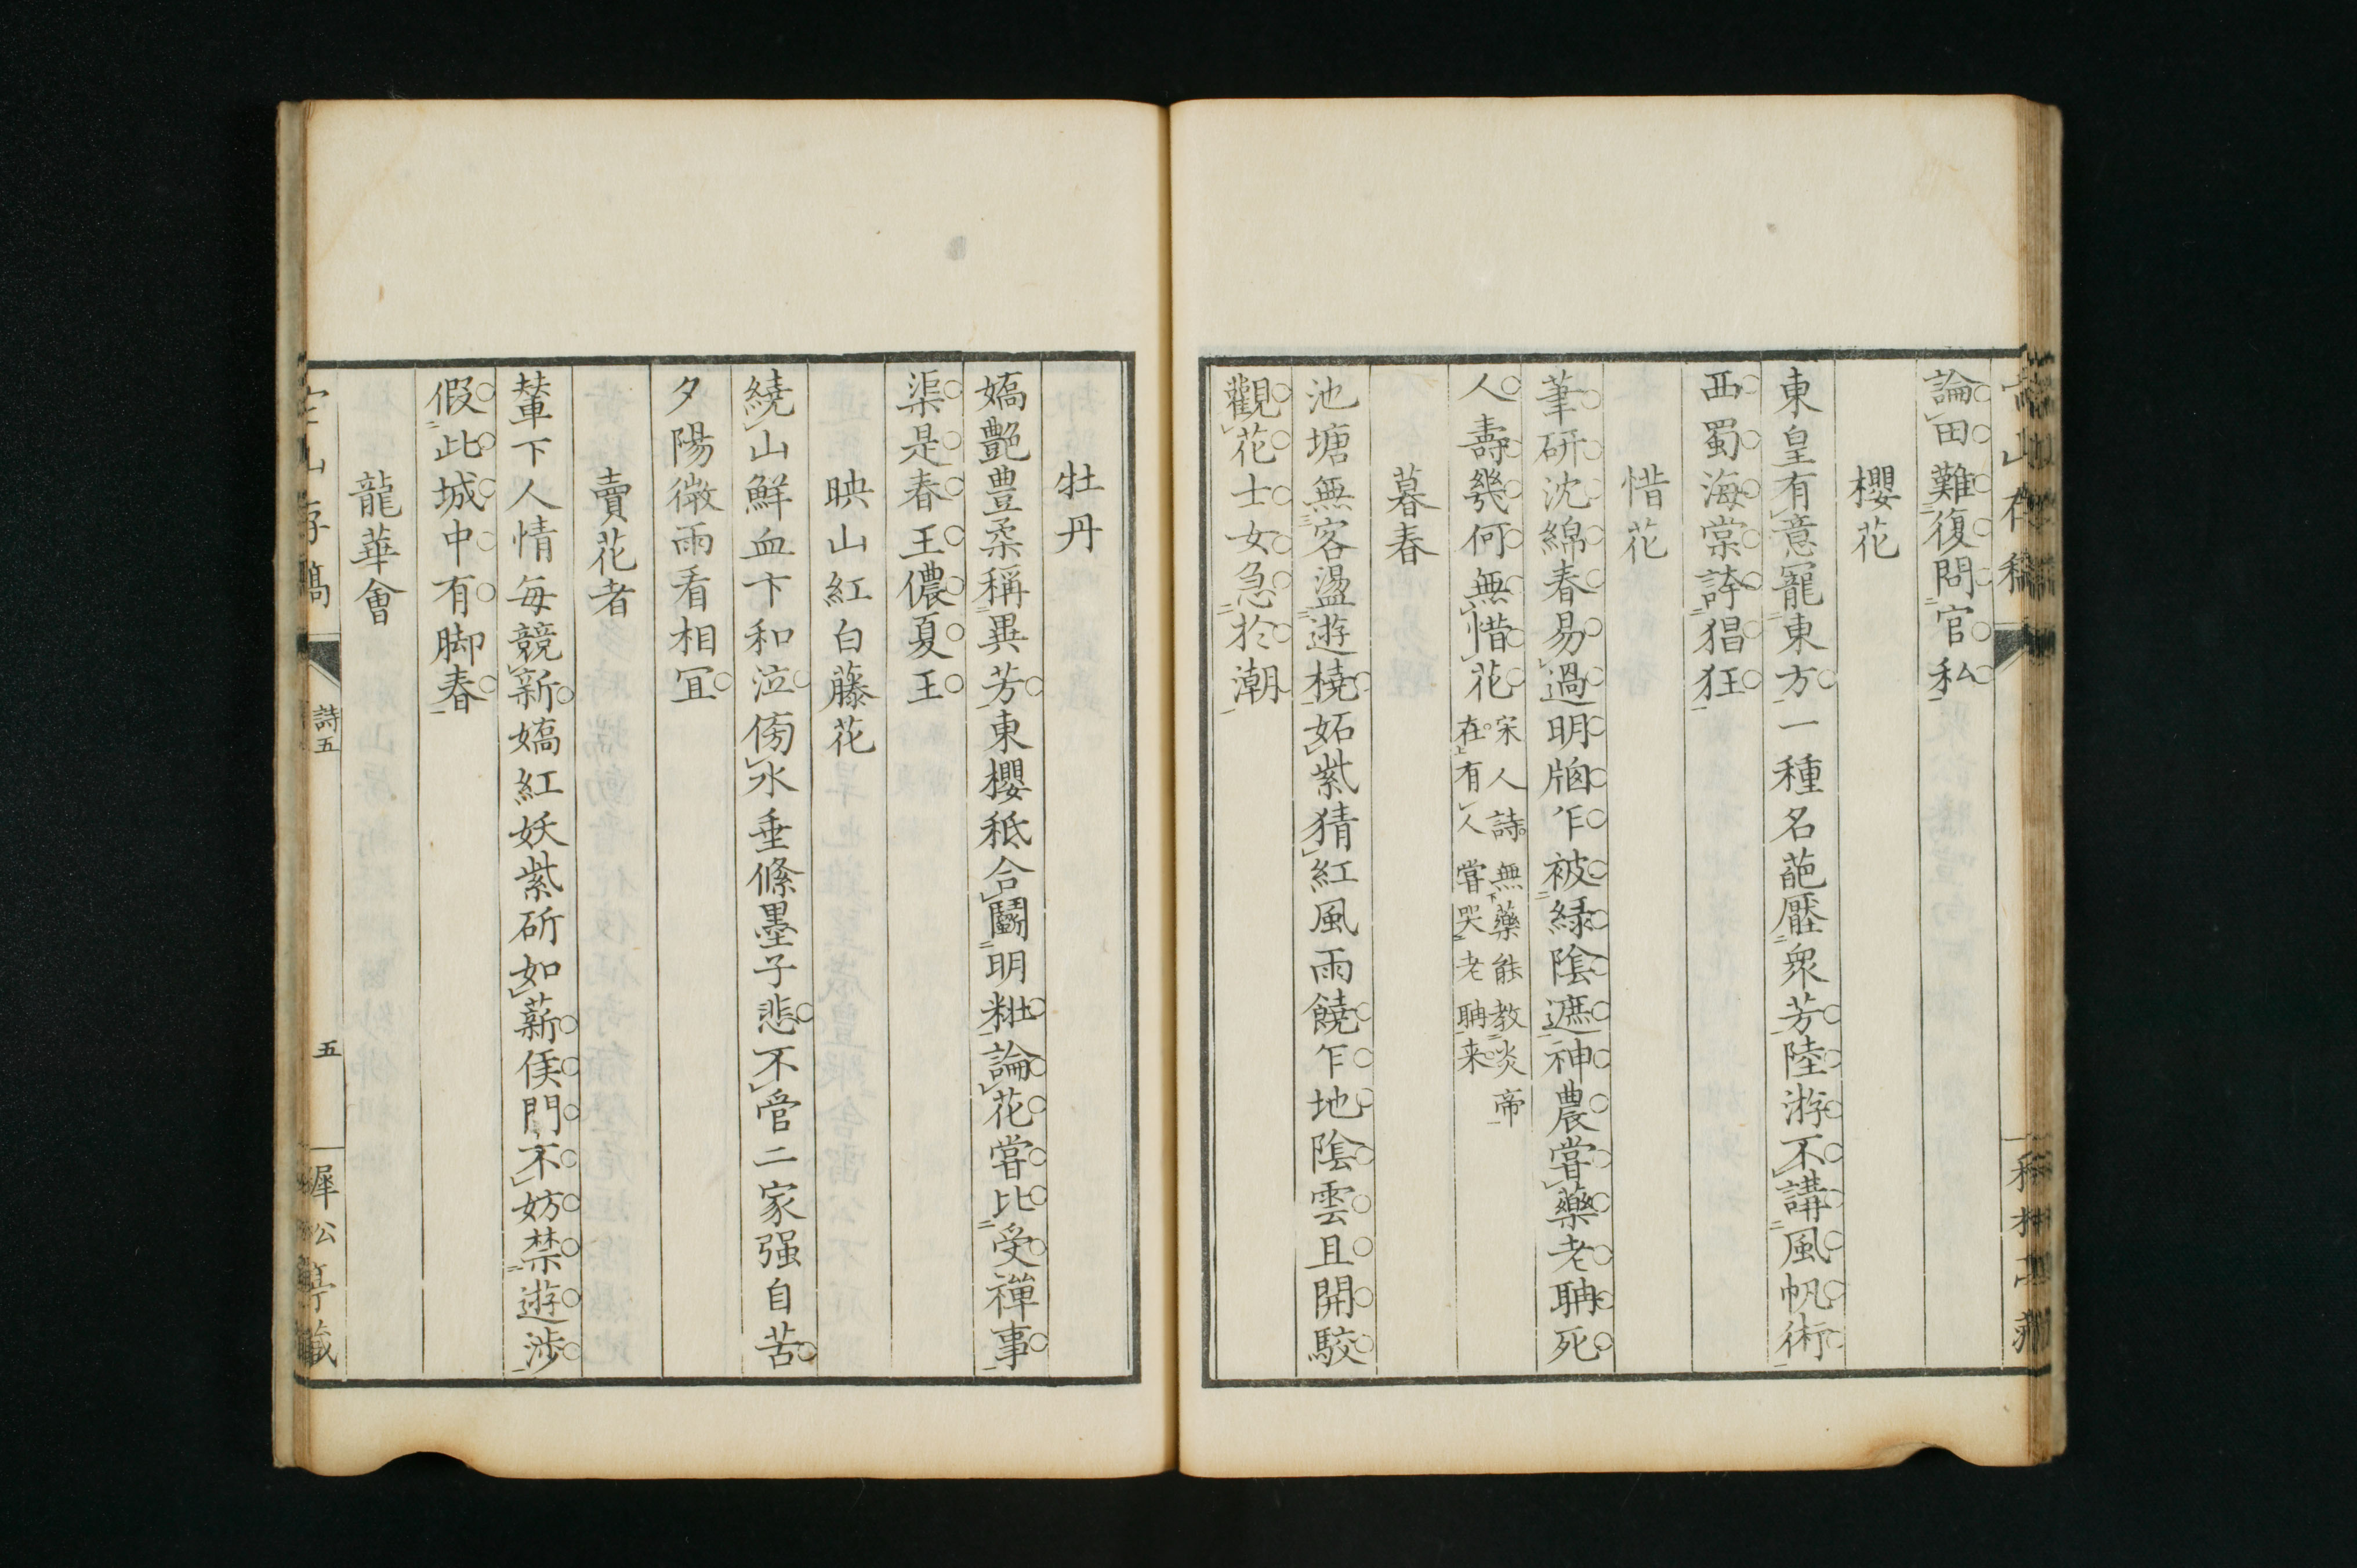 論田難復問官私
櫻花
東皇有意寵東方一種名葩壓衆芳陸游不講風帆術
西蜀海棠誇猖狂
惜花
筆研沈綿春易過明牕乍被緑陰遮神農嘗藥老聃死
人壽幾何無惜花
宋人詩無藥能教炎帝
在有人嘗哭老聃来
暮春
池塘無客盪遊橈妬紫猜紅風雨饒乍地陰雲且開駮
觀花士女急於潮
牡丹
嬌艶豊柔稱異芳東櫻秪合鬪明粧論花嘗比受禪事
渠是春王儂夏王
映山紅白藤花
繞山鮮血卞和泣傍水垂絛墨子悲不管二家强自苦
夕陽微雨看相冝
賣花者
輦下人情每競新嬌紅妖紫斫如薪侯門不妨禁遊渉
假此城中有脚春
龍華會
詩五
五